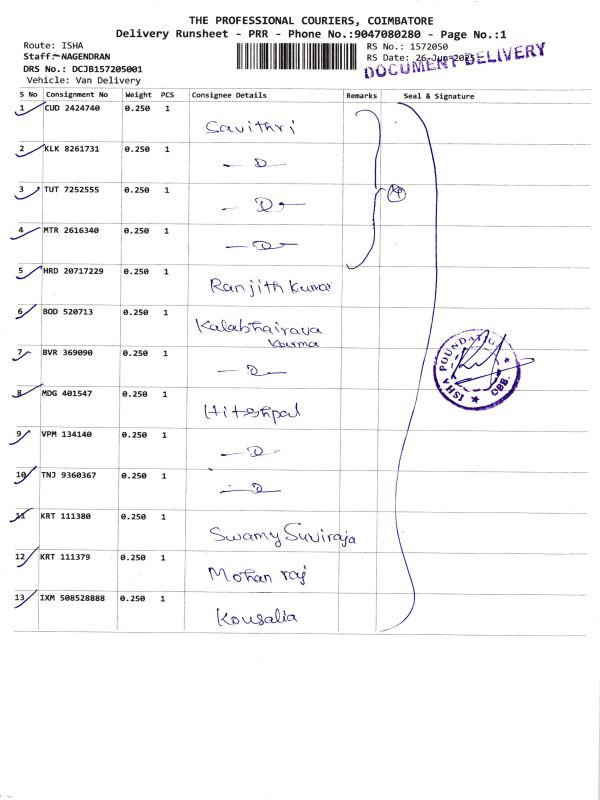 THE PROFESSIONAL COURIERS, COIMBATORE
Delivery Runsheet - PRR - Phone No.:9047080280 - Page No.:1
Route: ISHA
RS No.: 1572050
Staff: NAGENDRAN
RS Date: 26-Jun-2025
DOCUMENT DELIVERY
DRS No.: DCJB157205001
Vehicle: Van Delivery
S No Consignment No Weight PCS Consignee Details Remarks Seal & Signature
1 CUD 2424740 0.250 1
Savithri
2 KLK 8261731 0.250 1
— D —
3 TUT 7252555 0.250 1
— D —
4 MTR 2616340 0.250 1
— D —
4
5 HRD 20717229 0.250 1
Ranjith Kumar
6 BOD 520713 0.250 1
Kalabhairava
Karma
7 BVR 369090 0.250 1
— D —
ISHA FOUNDATION
CBE.
8 MDG 401547 0.250 1
Hiteshpal
9 VPM 134140 0.250 1
— D —
10 TNJ 9360367 0.250 1
— D —
11 KRT 111380 0.250 1
Swamy Suviraja
12 KRT 111379 0.250 1
Mohan raj
13 IXM 508528888 0.250 1
Kousalia